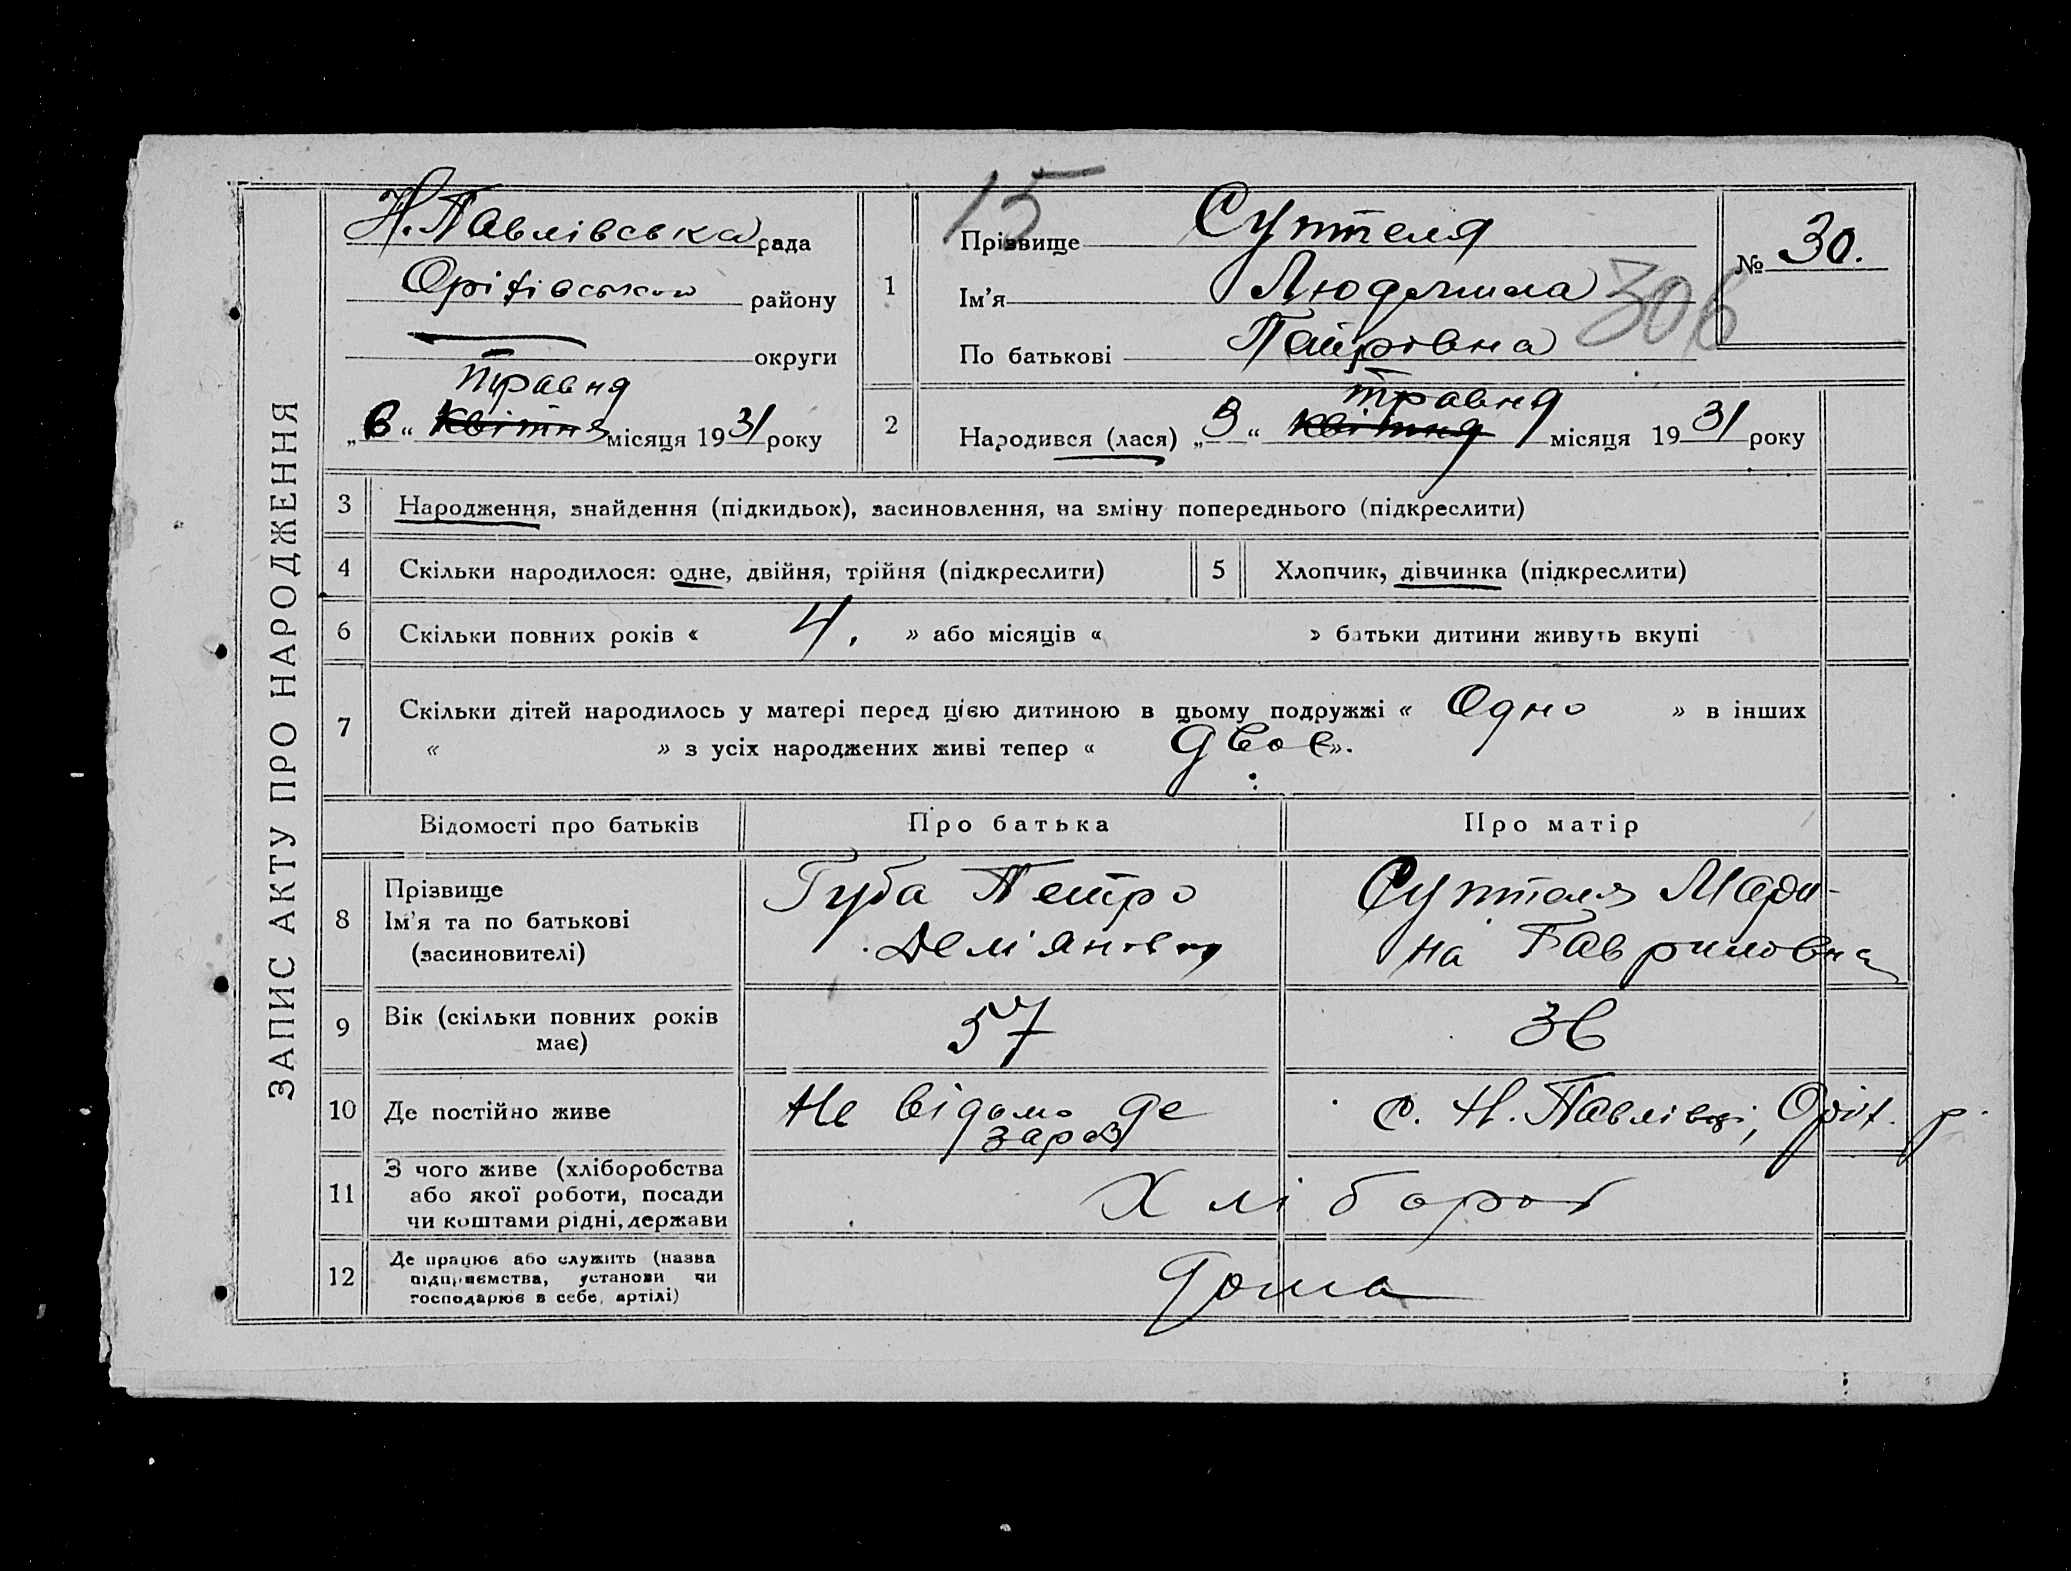 ЗАПИС АКТУ ПРО НАРОДЖЕННЯ
Н. Павлівська рада
Оріхівського району
округи
травня
„6“ квітня місяця 1931 року
15
1
Прізвище Суптеля
Ім'я Людмила
По батькові Петрівна
№ 30.
306
травня
2
Народився (лася) „3“ квітня місяця 1931 року
3 Народження, знайдення (підкидьок), засиновлення, на зміну попереднього (підкреслити)
4 Скільки народилося: одне, двійня, трійня (підкреслити)
5 Хлопчик, дівчинка (підкреслити)
6 Скільки повних років « 4. » або місяців « » батьки дитини живуть вкупі
7 Скільки дітей народилось у матері перед цією дитиною в цьому подружжі « Одно » в інших
« » з усіх народжених живі тепер « двоє».
Відомості про батьків Про батька Про матір
8
Прізвище
Ім'я та по батькові
(засиновителі)
Губа Петро
Дем'янович
Суптеля Мари-
на Гавриловна
9
Вік (скільки повних років
має)
57
36
10 Де постійно живе
Не відомо де
зараз
с. Н. Павлівці, Оріх. р.
11
З чого живе (хліборобства
або якої роботи, посади
чи коштами рідні, держави
Хлібороб
12
Де працює або служить (назва
підприємства, установи чи
господарює в себе, артілі)
дома